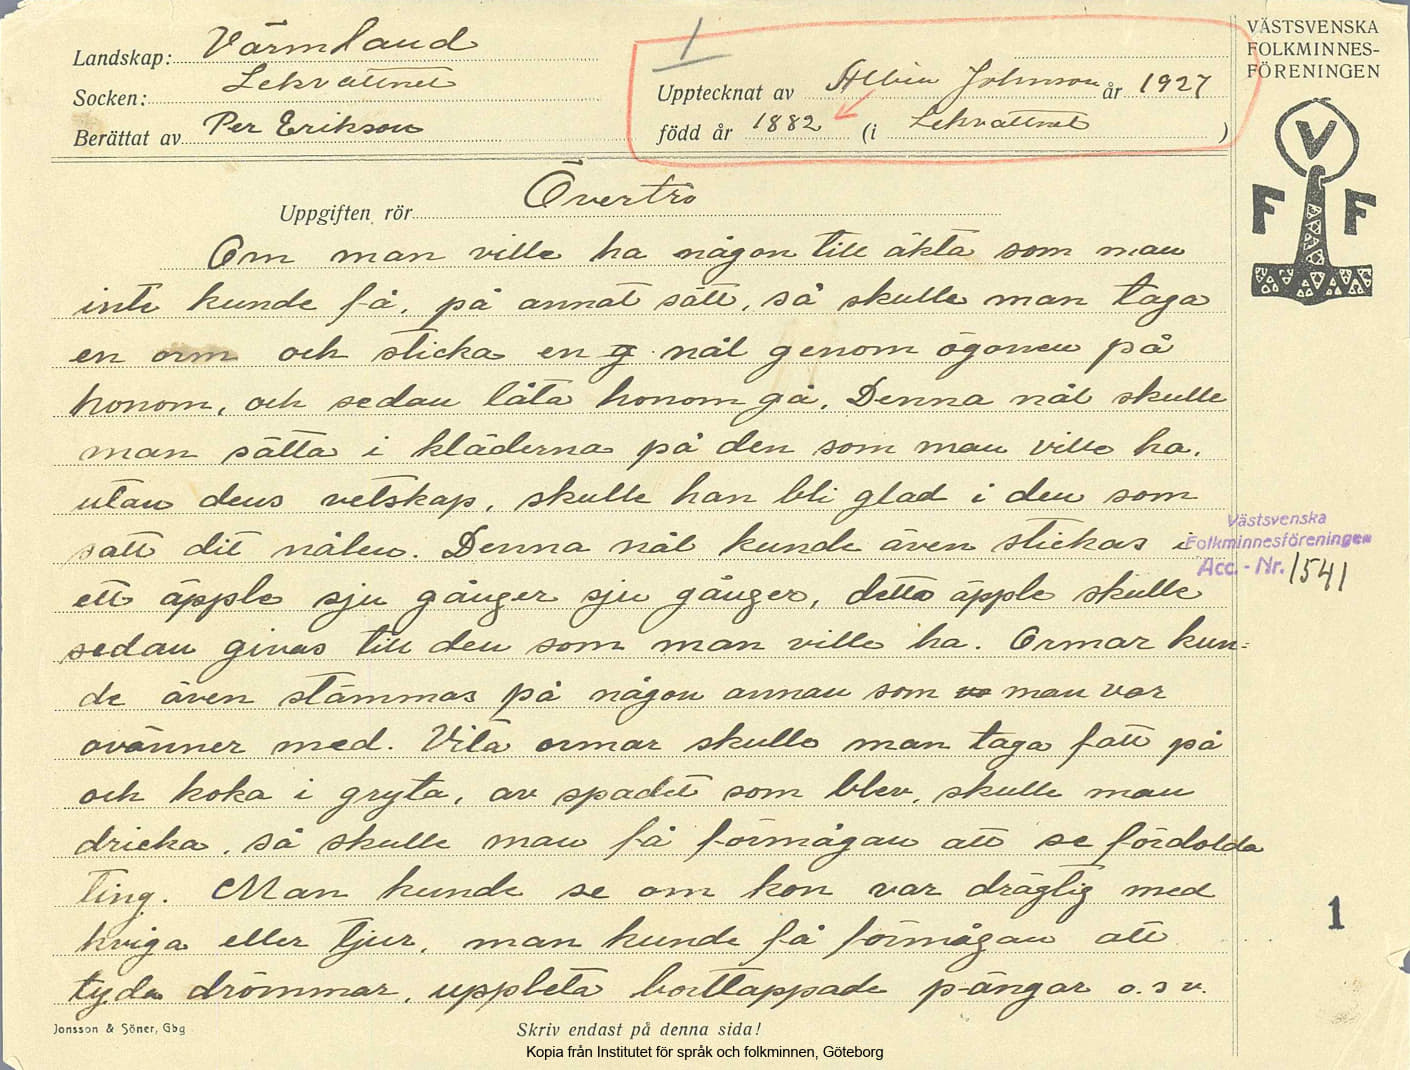 Landskap: Värmland
Socken: Lekvattnet
Berättat av Per Erikson
1
Upptecknat av Albin Johnson år 1927
född år 1882 (i Lekvattnet )
VÄSTSVENSKA
FOLKMINNES-
FÖRENINGEN
V
F F
Uppgiften rör Övertro
Om man ville ha någon till äkta som man
inte kunde få, på annat sätt, så skulle man taga
en orm och sticka en g nål genom ögonen på
honom, och sedan låta honom gå. Denna nål skulle
man sätta i kläderna på den som man ville ha,
utan dens vetskap, skulle han bli glad i den som
satt dit nålen. Denna nål kunde även stickas i
ett äpple sju gånger sju gånger, detta äpple skulle
sedan givas till den som man ville ha. Ormar kun=
de även stämmas på någon annan som va man var
ovänner med. Vita ormar skulle man taga fatt på
och koka i gryta, av spadet som blev, skulle man
dricka, så skulle man få förmågan att se fördolda
ting. Man kunde se om kon var drägtig med
kviga eller tjur, man kunde få förmågan att
tyda drömmar, uppleta borttappade pängar o.s v.
Västsvenska
Folkminnesföreningen
Acc. - Nr. 1541
1
Jonsson & Söner, Gbg
Skriv endast på denna sida!
Kopia från Institutet för språk och folkminnen, Göteborg